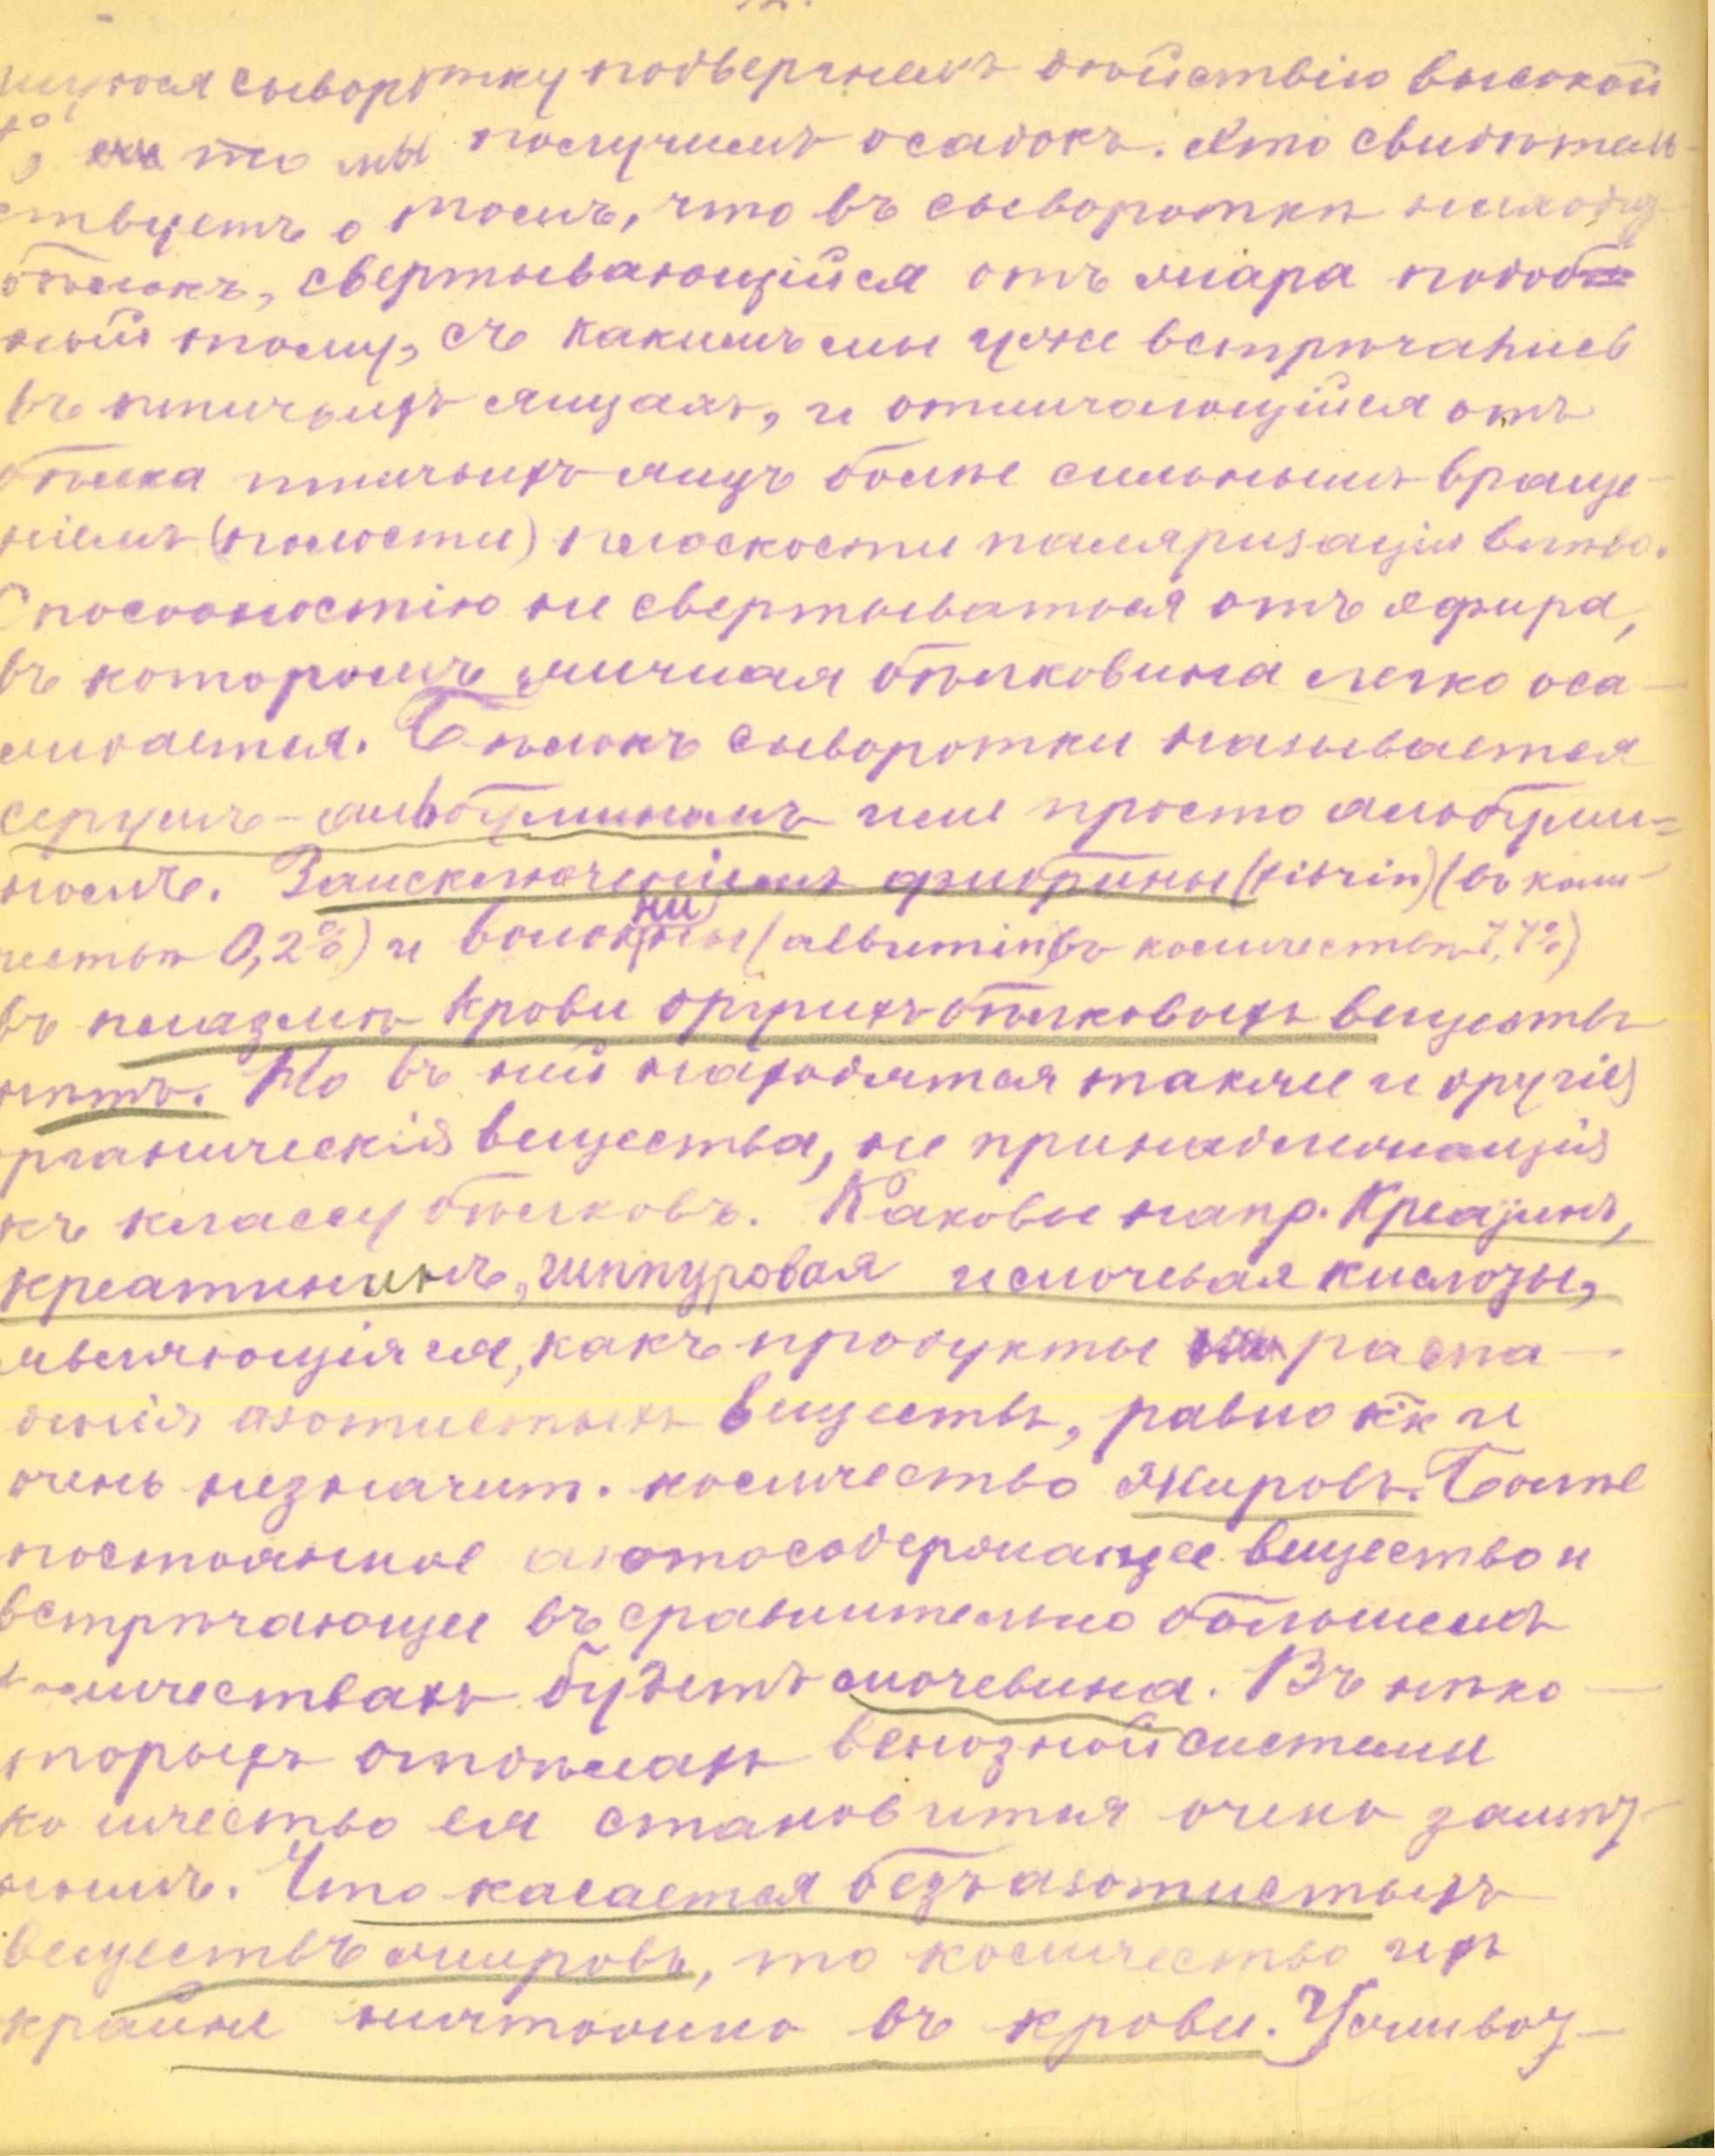 12.
щуюся сыворотку подвергнемъ дѣйствію высокой
t°, то мы получимъ осадокъ. Это свидѣтель-
ствуетъ о томъ, что въ сыворотки находи
бѣлокъ, свертывающійся отъ жара подоб
ный тому, съ какимъ мы уже встрѣчались
въ птичьихъ яйцахъ, и отличающійся отъ
бѣлка птичьихъ яицъ болѣе сильнымъ враще-
ніемъ (полости) плоскости паляризаціи влѣво.
Способностію не свертываться отъ эфира,
въ которомъ яичная бѣлковина легко оса-
ждается. Бѣлокъ сыворотки называется
серумъ-альбуминомъ или просто альбуми=
номъ. Заисключеніемъ фибрины (fibrin) (въ коли-
чествѣ 0,2%) и (albumin въ количествѣ 7,7%)
въ плазмѣ крови другихъ бѣлковыхъ веществъ
нѣтъ. Но въ ней находятся также и другія
рганическія вещества, не принадлежащія
къ классу бѣлковъ. Каковы напр. Креатинъ,
креатининъ, гиппуровая и мочевая кислоты,
являющіяся, какъ продукты распа-
денія азотистыхъ веществъ, равно кк и
очень незначит. количество жировъ. Болѣе
постоянное азотосодержащее вещество и
встрѣчающее въ сравнительно большемъ
количествахъ будетъ мочевина. Въ нѣко-
торыхъ отдѣлахъ венозной системы
количество ея становится очень замѣт-
нымъ. Что касается безъазотистыхъ
веществъ жировъ, то количество ихъ
крайне ничтожно въ крови.